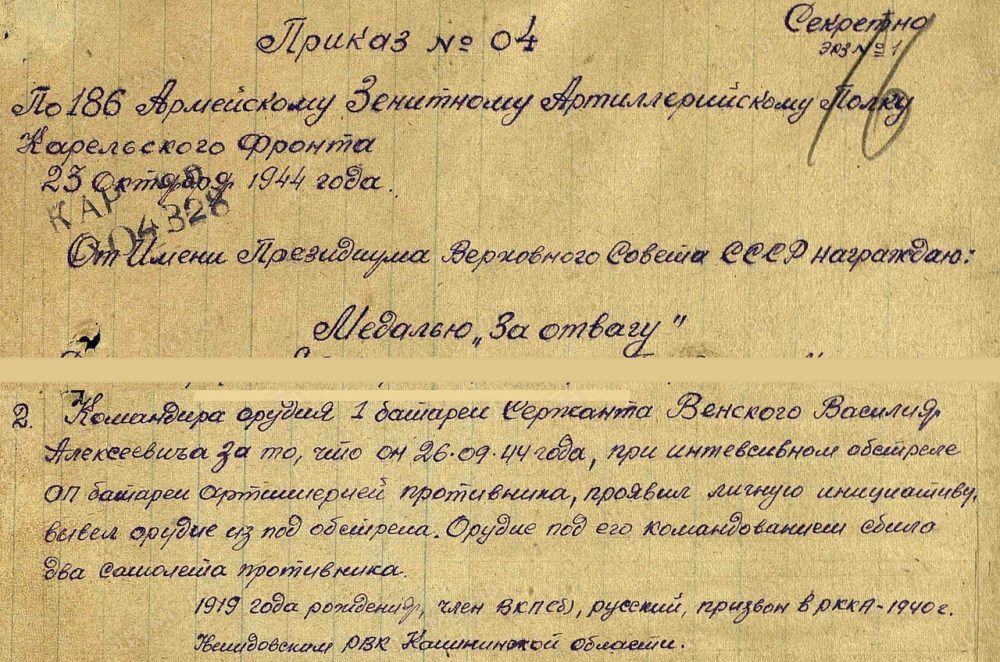 Секретно
экз № 1
16
Приказ № 04
По 186 Армейскому Зенитному Артиллерийскому Полку
Карельского Фронта
23 Октября 1944 года.
КАР
04328
От Имени Президиума Верховного Совета СССР награждаю:
Медалью „За отвагу"
2. Командира орудия 1 батареи Сержанта Венского Василия
Алексеевичъа за то, что он 26.09.44 года, при интевсивном обстреле
ОП батареи артиллерией противника, проявил личную инициативу,
вывел орудие из под обстрела. Орудие под его командованием сбило
два самолета противника.
1919 года рождения, член ВКП(б), русский, призвон в РККА-1940г.
Нелидовским РВК Калининской области.